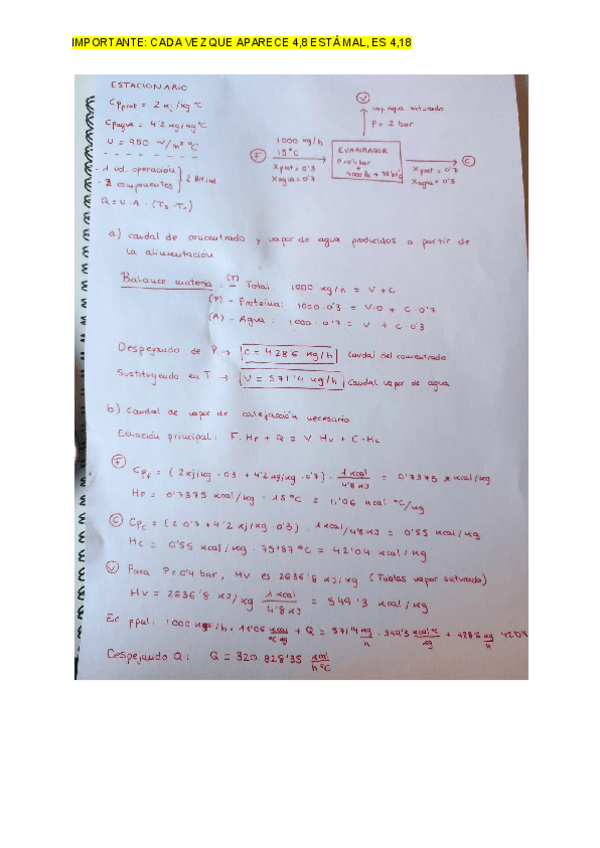 IMPORTANTE: CADA VEZ QUE APARECE 4,8 ESTÁ MAL, ES 4,18
ESTACIONARIO
Cpprot = 2 kj/kg ºC
Cpagua = 4'2 kg/kg ºC
U = 950 W/m² ºC
- 1 ud. operación
- 2 componentes } 2 BM ind
Q = U · A · (Ts - Te)
V
vap. agua saturado
P = 2 bar
F
1000 kg/h
15 ºC
Xprot = 0'3
Xagua = 0'7
EVAPORADOR
P = 0'4 bar
C
Xprot = 0'7
Xagua = 0'3
a) caudal de concentrado y vapor de agua producidos a partir de
la alimentación
Balance materia: (T) - Total: 1000 kg/h = V + C
(P) - Proteína: 1000 · 0'3 = V · 0 + C · 0'7
(A) - Agua: 1000 · 0'7 = V + C · 0'3
Despejando de P → C = 428'6 kg/h caudal del concentrado
Sustituyendo en T → V = 571'4 kg/h caudal vapor de agua
b) caudal de vapor de calefacción necesario
Ecuación principal: F · HF + Q = V · HV + C · HC
F CpF = (2 kj/kg · 0'3 + 4'2 kg/kg · 0'7) · 1 kcal / 4'8 KJ = 0'7375 kcal/kg
HF = 0'7375 kcal/kg · 15 ºC = 11'06 kcal ºC/kg
C CpC = (2 · 0'7 + 4'2 kj/kg · 0'3) · 1 kcal/4'8 KJ = 0'55 kcal/kg
HC = 0'55 kcal/kg · 75'87 ºC = 42'04 kcal/kg
V Para P = 0'4 bar, HV es 2636'8 kj/kg (Tablas vapor saturado)
HV = 2636'8 kj/kg 1 kcal / 4'8 KJ = 549'3 kcal/kg
Ec ppal: 1000 kg/h · 11'06 kcal / ºC kg + Q = 571'4 kg/h · 549'3 kcal ºC / kg + 428'6 kg/h
Despejando Q: Q = 320.828'35 kcal / h ºC